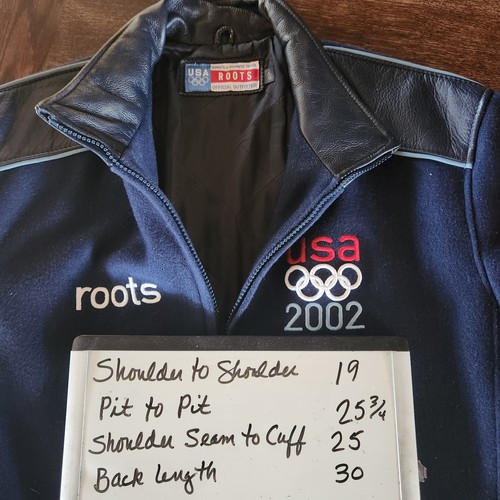 USA
ROOTS
OFFICIAL OUTFITTER
roots
usa
2002
Shoulder to Shoulder 19
Pit to Pit 25 3/4
Shoulder Seam to Cuff 25
Back Length 30